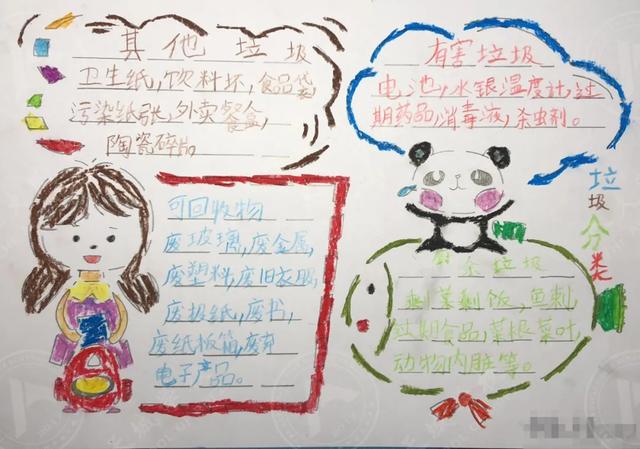 其他垃圾
卫生纸，饮料坏，食品袋，
污染纸张，外卖餐盒，
陶瓷碎片。
有害垃圾
电池，水银温度计，过
期药品，消毒液，杀虫剂。
垃圾分类
可回收物
废玻璃，废金属，
废塑料，废旧衣服，
废报纸，废书，
废纸板箱，废弃
电子产品。
厨余垃圾
剩菜剩饭，鱼刺，
过期食品，菜根菜叶，
动物内脏等。